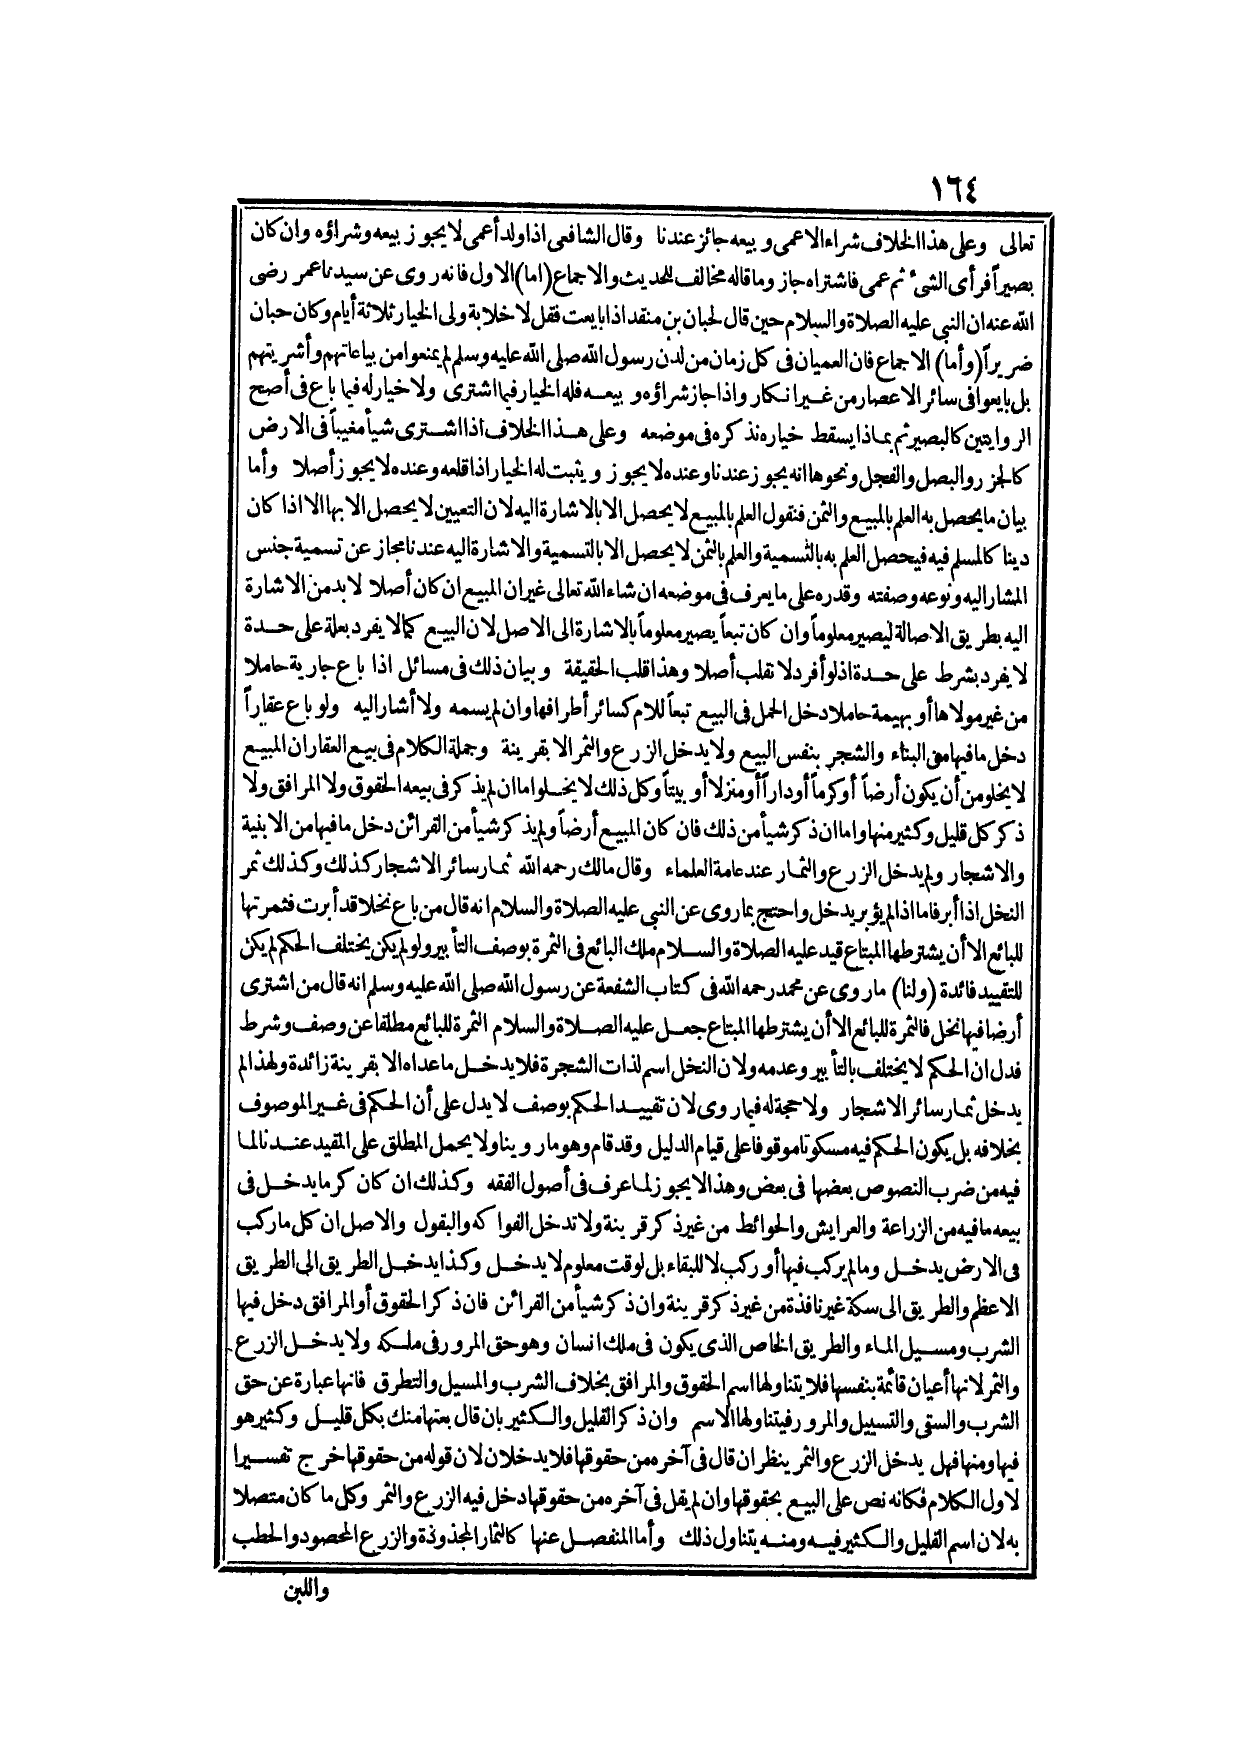 ١٦٤
تعالى وعلى هذا الخلاف شراء الاعمى وبيعه جائز عندنا وقال الشافعى اذا ولد أعمى لا يجوز بيعه وشراؤه وان كان
بصيراً فرأى الشئ ثم عمى فاشتراه جاز وما قاله مخالف للحديث والاجماع (اما) الاول فانه روى عن سيدنا عمر رضى
الله عنه ان النبي عليه الصلاة والسلام حين قال لحبان بن منقذ اذا بايعت فقل لا خلابة ولى الخيار ثلاثة أيام وكان حبان
ضريراً (وأما) الاجماع فان العميان فى كل زمان من لدن رسول الله صلى الله عليه وسلم لم يمنعوا من بياعاتهم وأشريتهم
بل بايعوا فى سائر الاعصار من غير انكار واذا جاز شراؤه وبيعه فله الخيار فيما اشترى ولا خيار له فيما باع فى أصح
الروايتين كالبصير ثم بماذا يسقط خياره نذكره فى موضعه وعلى هذا الخلاف اذا اشترى شيأ مغيباً فى الارض
كالجزر والبصل والفجل ونحوها انه يجوز عندنا وعنده لا يجوز ويثبت له الخيار اذا قلعه وعنده لا يجوز أصلا وأما
بيان ما يحصل به العلم بالمبيع والثمن فنقول العلم بالمبيع لا يحصل الا بالاشارة اليه لان التعيين لا يحصل الا بها الا اذا كان
دينا كالمسلم فيه فيحصل العلم به بالتسمية والعلم بالثمن لا يحصل الا بالتسمية والاشارة اليه عندنا مجاز عن تسمية جنس
المشار اليه ونوعه وصفته وقدره على ما يعرف فى موضعه ان شاء الله تعالى غير ان المبيع ان كان أصلا لا بد من الاشارة
اليه بطريق الاصالة ليصير معلوماً وان كان تبعاً يصير معلوماً بالاشارة الى الاصل لان البيع كما لا يفرد بعلة على حدة
لا يفرد بشرط على حدة اذ لو أفرد لا تقلب أصلا وهذا قلب الحقيقة وبيان ذلك فى مسائل اذا باع جارية حاملا
من غير مولاها أو بهيمة حاملا دخل الحمل فى البيع تبعاً للام كسائر أطرافها وان لم يسمه ولا أشار اليه ولو باع عقاراً
دخل ما فيها من البناء والشجر بنفس البيع ولا يدخل الزرع والثمر الا بقرينة وجملة الكلام فى بيع العقار ان المبيع
لا يخلو من أن يكون أرضاً أو كرماً أو داراً أو منزلا أو بيتاً وكل ذلك لا يخلوا ما ان لم يذكر فى بيعه الحقوق ولا المرافق ولا
ذكر كل قليل وكثير منها واما ان ذكر شيأ من ذلك فان كان المبيع أرضاً ولم يذكر شيأ من القرائن دخل ما فيها من الابنية
والاشجار ولم يدخل الزرع والثمار عند عامة العلماء وقال مالك رحمه الله ثمار سائر الاشجار كذلك وكذلك ثمر
النخل اذا أبر فاما اذا لم يؤبر يدخل واحتج بما روى عن النبى عليه الصلاة والسلام انه قال من باع نخلا قد أبرت فثمرتها
للبائع الا أن يشترطها المبتاع قيد عليه الصلاة والسلام ملك البائع فى الثمرة بوصف التأبير ولو لم يكن يختلف الحكم لم يكن
للتقييد فائدة (ولنا) ما روى عن محمد رحمه الله فى كتاب الشفعة عن رسول الله صلى الله عليه وسلم انه قال من اشترى
أرضا فيها نخل فالثمرة للبائع الا أن يشترطها المبتاع جعل عليه الصلاة والسلام الثمرة للبائع مطلقا عن وصف وشرط
فدل ان الحكم لا يختلف بالتأبير وعدمه ولان النخل اسم لذات الشجرة فلا يدخل ما عداه الا بقرينة زائدة ولهذا لم
يدخل ثمار سائر الاشجار ولا حجة له فيما روى لان تقييد الحكم بوصف لا يدل على أن الحكم فى غير الموصوف
بخلافه بل يكون الحكم فيه مسكوتا موقوفا على قيام الدليل وقد قام وهو ما روينا ولا يحمل المطلق على المقيد عندنا لما
فيه من ضرب النصوص بعضها فى بعض وهذا لا يجوز لما عرف فى أصول الفقه وكذلك ان كان كرما يدخل فى
بيعه ما فيه من الزراعة والعرايش والحوائط من غير ذكر قرينة ولا تدخل الفواكه والبقول والاصل ان كل ما ركب
فى الارض يدخل وما لم يركب فيها أو ركب لا للبقاء بل لوقت معلوم لا يدخل وكذا يدخل الطريق الى الطريق
الاعظم والطريق الى سكة غير نافذة من غير ذكر قرينة وان ذكر شيأ من القرائن فان ذكر الحقوق أو المرافق دخل فيها
الشرب ومسيل الماء والطريق الخاص الذى يكون فى ملك انسان وهو حق المرور فى ملكه ولا يدخل الزرع
والثمر لانها أعيان قائمة بنفسها فلا يتناولها اسم الحقوق والمرافق بخلاف الشرب والمسيل والتطرق فانها عبارة عن حق
الشرب والسقى والتسييل والمرور فيتناولها الاسم وان ذكر القليل والكثير بان قال بعتها منك بكل قليل وكثير هو
فيها ومنها فهل يدخل الزرع والثمر ينظر ان قال فى آخره من حقوقها فلا يدخلان لان قوله من حقوقها خرج تفسيرا
لاول الكلام فكانه نص على البيع بحقوقها وان لم يقل فى آخره من حقوقها دخل فيه الزرع والثمر وكل ما كان متصلا
به لان اسم القليل والكثير فيه ومنه يتناول ذلك وأما المنفصل عنها كالثمار المجذوذة والزرع المحصود والحطب
واللبن